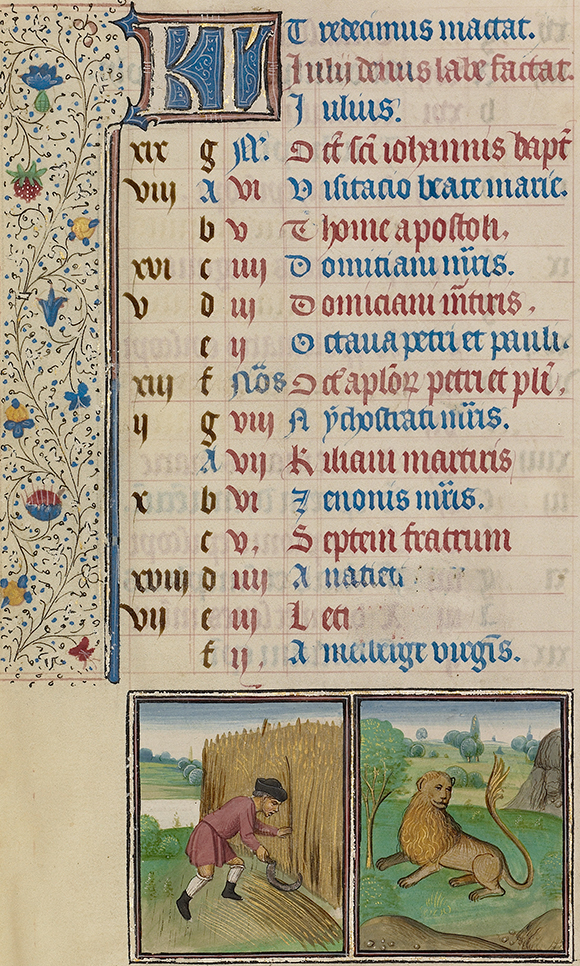 KL Tredecimus mactat.
Iulii denus labe factat.
Iulius.
xix g N. Oct sci iohannis bapt
viii A vi Visitacio beate marie.
b v Thome apostoli,
xvi c iiii Domiciani mris.
v d iii Domiciani mtiris,
e ii Octaua petri et pauli.
xiii f Nos Oct aplor petri et pli,
ii g viii Nychostrati mris.
A vii Kiliani martiris
x b vi Zenonis mris.
c v, Septem fratrum
xviii d iiii
vii e iii Leti
f ii, Amelberge virgis.